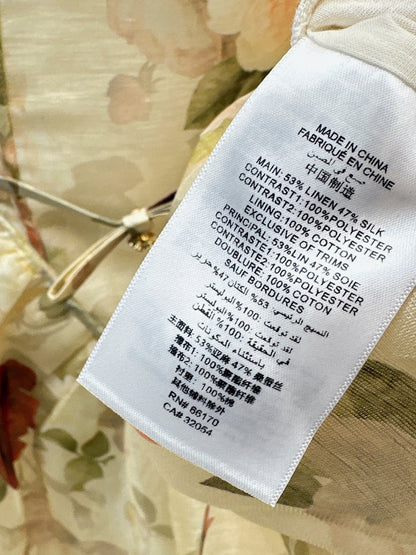 MADE IN CHINA
FABRIQUÉ EN CHINE
صنع في الصين
中国制造
MAIN: 53% LINEN 47% SILK
CONTRAST1: 100%POLYESTER
CONTRAST2: 100%POLYESTER
LINING: 100% COTTON
EXCLUSIVE OF TRIMS
PRINCIPAL: 53%LIN 47% SOIE
DOUBLETE1: 100%POLYESTER
DOUBLETE2: 100%POLYESTER
DOUBLURE: 100% COTON
SAUF BORDURES
النسيج الرئيسي: 53% الكتان 47% حرير
لقد توقعت: 100% البوليستر
لقد توقعت: 100% البوليستر
في الحقيقة: 100% القطن
باستثناء المكونات
主面料: 53%亚麻 47% 桑蚕丝
撞布1: 100%聚酯纤维
撞布2: 100%聚酯纤维
衬里: 100%棉
其他辅料除外
RN# 86170
CA# 32054